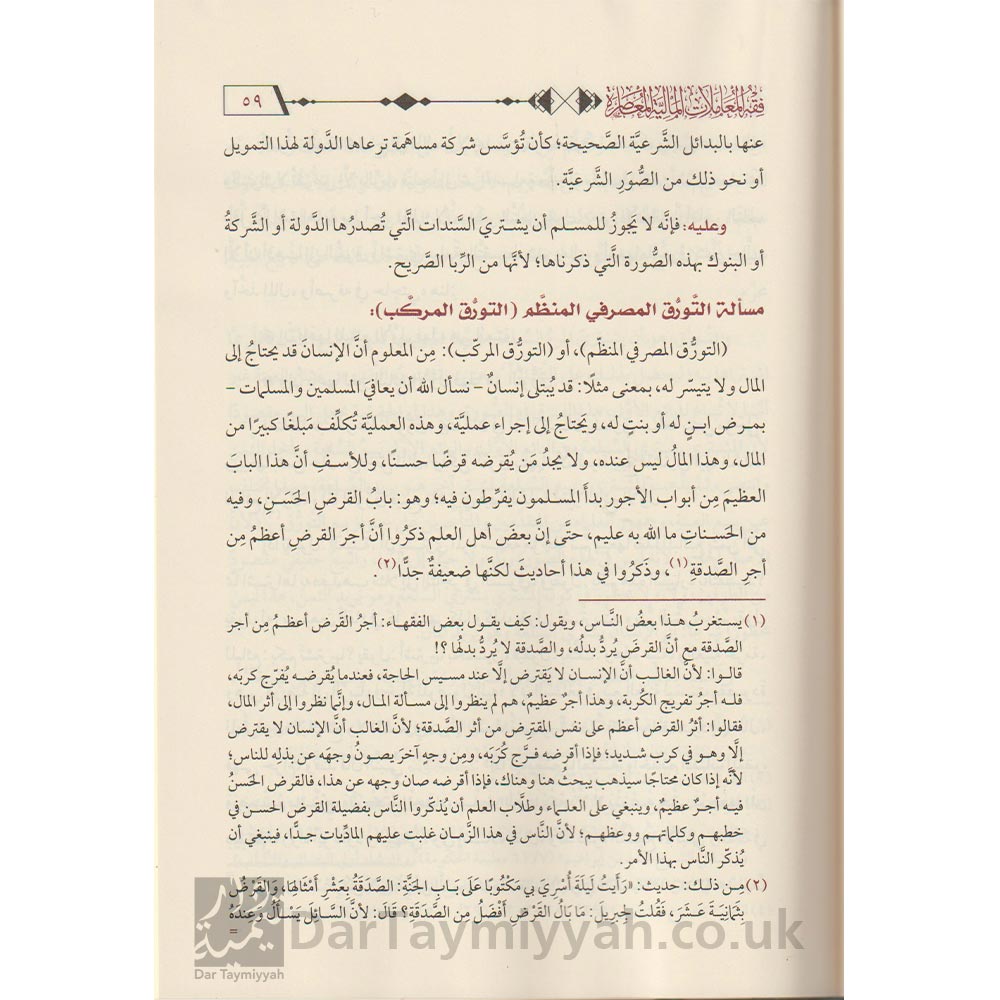 فقه المعاملات المالية المعاصرة
٥٩
عنها بالبدائل الشَّرعيَّة الصَّحيحة؛ كأن تُؤسَّس شركة مساهَمة ترعاها الدَّولة لهذا التمويل
أو نحو ذلك من الصُّوَرِ الشَّرعيَّة.
وعليه: فإنَّه لا يَجوزُ للمسلم أن يشتريَ السَّندات الَّتي تُصدرُها الدَّولة أو الشَّركةُ
أو البنوك بهذه الصُّورة الَّتي ذكرناها؛ لأنَّها من الرِّبا الصَّريح.
مسألة التَّورُّق المصرفي المنظَّم (التورُّق المركَّب):
(التورُّق المصرفي المنظّم)، أو (التورُّق المركّب): مِن المعلوم أنَّ الإنسان قد يحتاجُ إلى
المال ولا يتيسّر له، بمعنى مثلًا: قد يُبتلى إنسانٌ – نسأل الله أن يعافيَ المسلمين والمسلمات –
بمرض ابنٍ له أو بنتٍ له، ويَحتاجُ إلى إجراء عمليَّة، وهذه العمليَّة تُكلِّف مَبلغًا كبيرًا من
المال، وهذا المالُ ليس عنده، ولا يجدُ مَن يُقرضه قرضًا حسنًا، وللأسفِ أنَّ هذا البابَ
العظيمَ مِن أبواب الأجور بدأَ المسلمون يفرِّطون فيه؛ وهو: بابُ القرضِ الحَسَنِ، وفيه
من الحَسناتِ ما الله به عليم، حتَّى إنَّ بعضَ أهل العلم ذكرُوا أنَّ أجرَ القرضِ أعظمُ مِن
أجرِ الصَّدقةِ(١)، وذَكرُوا في هذا أحاديثَ لكنَّها ضعيفةٌ جدًّا(٢).
(١) يستغربُ هذا بعضُ النَّاس، ويقول: كيف يقول بعض الفقهاء: أجرُ القَرض أعظمُ مِن أجر
الصَّدقة مع أنَّ القرضَ يُردُّ بدلُه، والصَّدقة لا يُردُّ بدلُها ؟!
قالوا: لأنَّ الغالب أنَّ الإنسان لا يَقترض إلَّا عند مسيس الحاجة، فعندما يُقرضه يُفرّج كربَه،
فله أجرُ تفريج الكُربة، وهذا أجرٌ عظيمٌ، هم لم ينظروا إلى مسألة المال، وإنَّما نظروا إلى أثر المال،
فقالوا: أثرُ القرض أعظم على نفس المقترِض من أثر الصَّدقة؛ لأنَّ الغالب أنَّ الإنسان لا يقترض
إلَّا وهو في كرب شديد؛ فإذا أقرضه فرَّج كُربَه، ومِن وجهٍ آخرَ يصونُ وجهَه عن بذلِه للناس؛
لأنَّه إذا كان محتاجًا سيذهب يبحثُ هنا وهناك، فإذا أقرضه صان وجهه عن هذا، فالقرض الحَسنُ
فيه أجرٌ عظيمٌ، وينبغي على العلماء وطلَّاب العلم أن يُذكّروا النَّاس بفضيلة القرض الحسن في
خطبهم وكلماتهم ووعظهم؛ لأنَّ النَّاس في هذا الزَّمان غلبت عليهم المادِّيات جدًّا، فينبغي أن
يُذكّر النَّاس بهذا الأمر.
(٢) مِن ذلك: حديث: «رَأَيتُ لَيلَةَ أُسْرِيَ بي مَكْتُوبًا عَلَى بَابِ الجَنَّةِ: الصَّدَقَةُ بِعَشْرِ أَمْثَالِهَا، وَالقَرْضُ
بِثَمَانِيَةَ عَشَرَ، فَقُلتُ لِجِبرِيلَ: مَا بَالُ القَرْضِ أَفْضَلُ مِن الصَّدَقَةِ؟ قَالَ: لأنَّ السَّائِلَ يَسْأَلُ وَعِندَهُ
=
دار تيمية
Dar Taymiyyah
DarTaymiyyah.co.uk